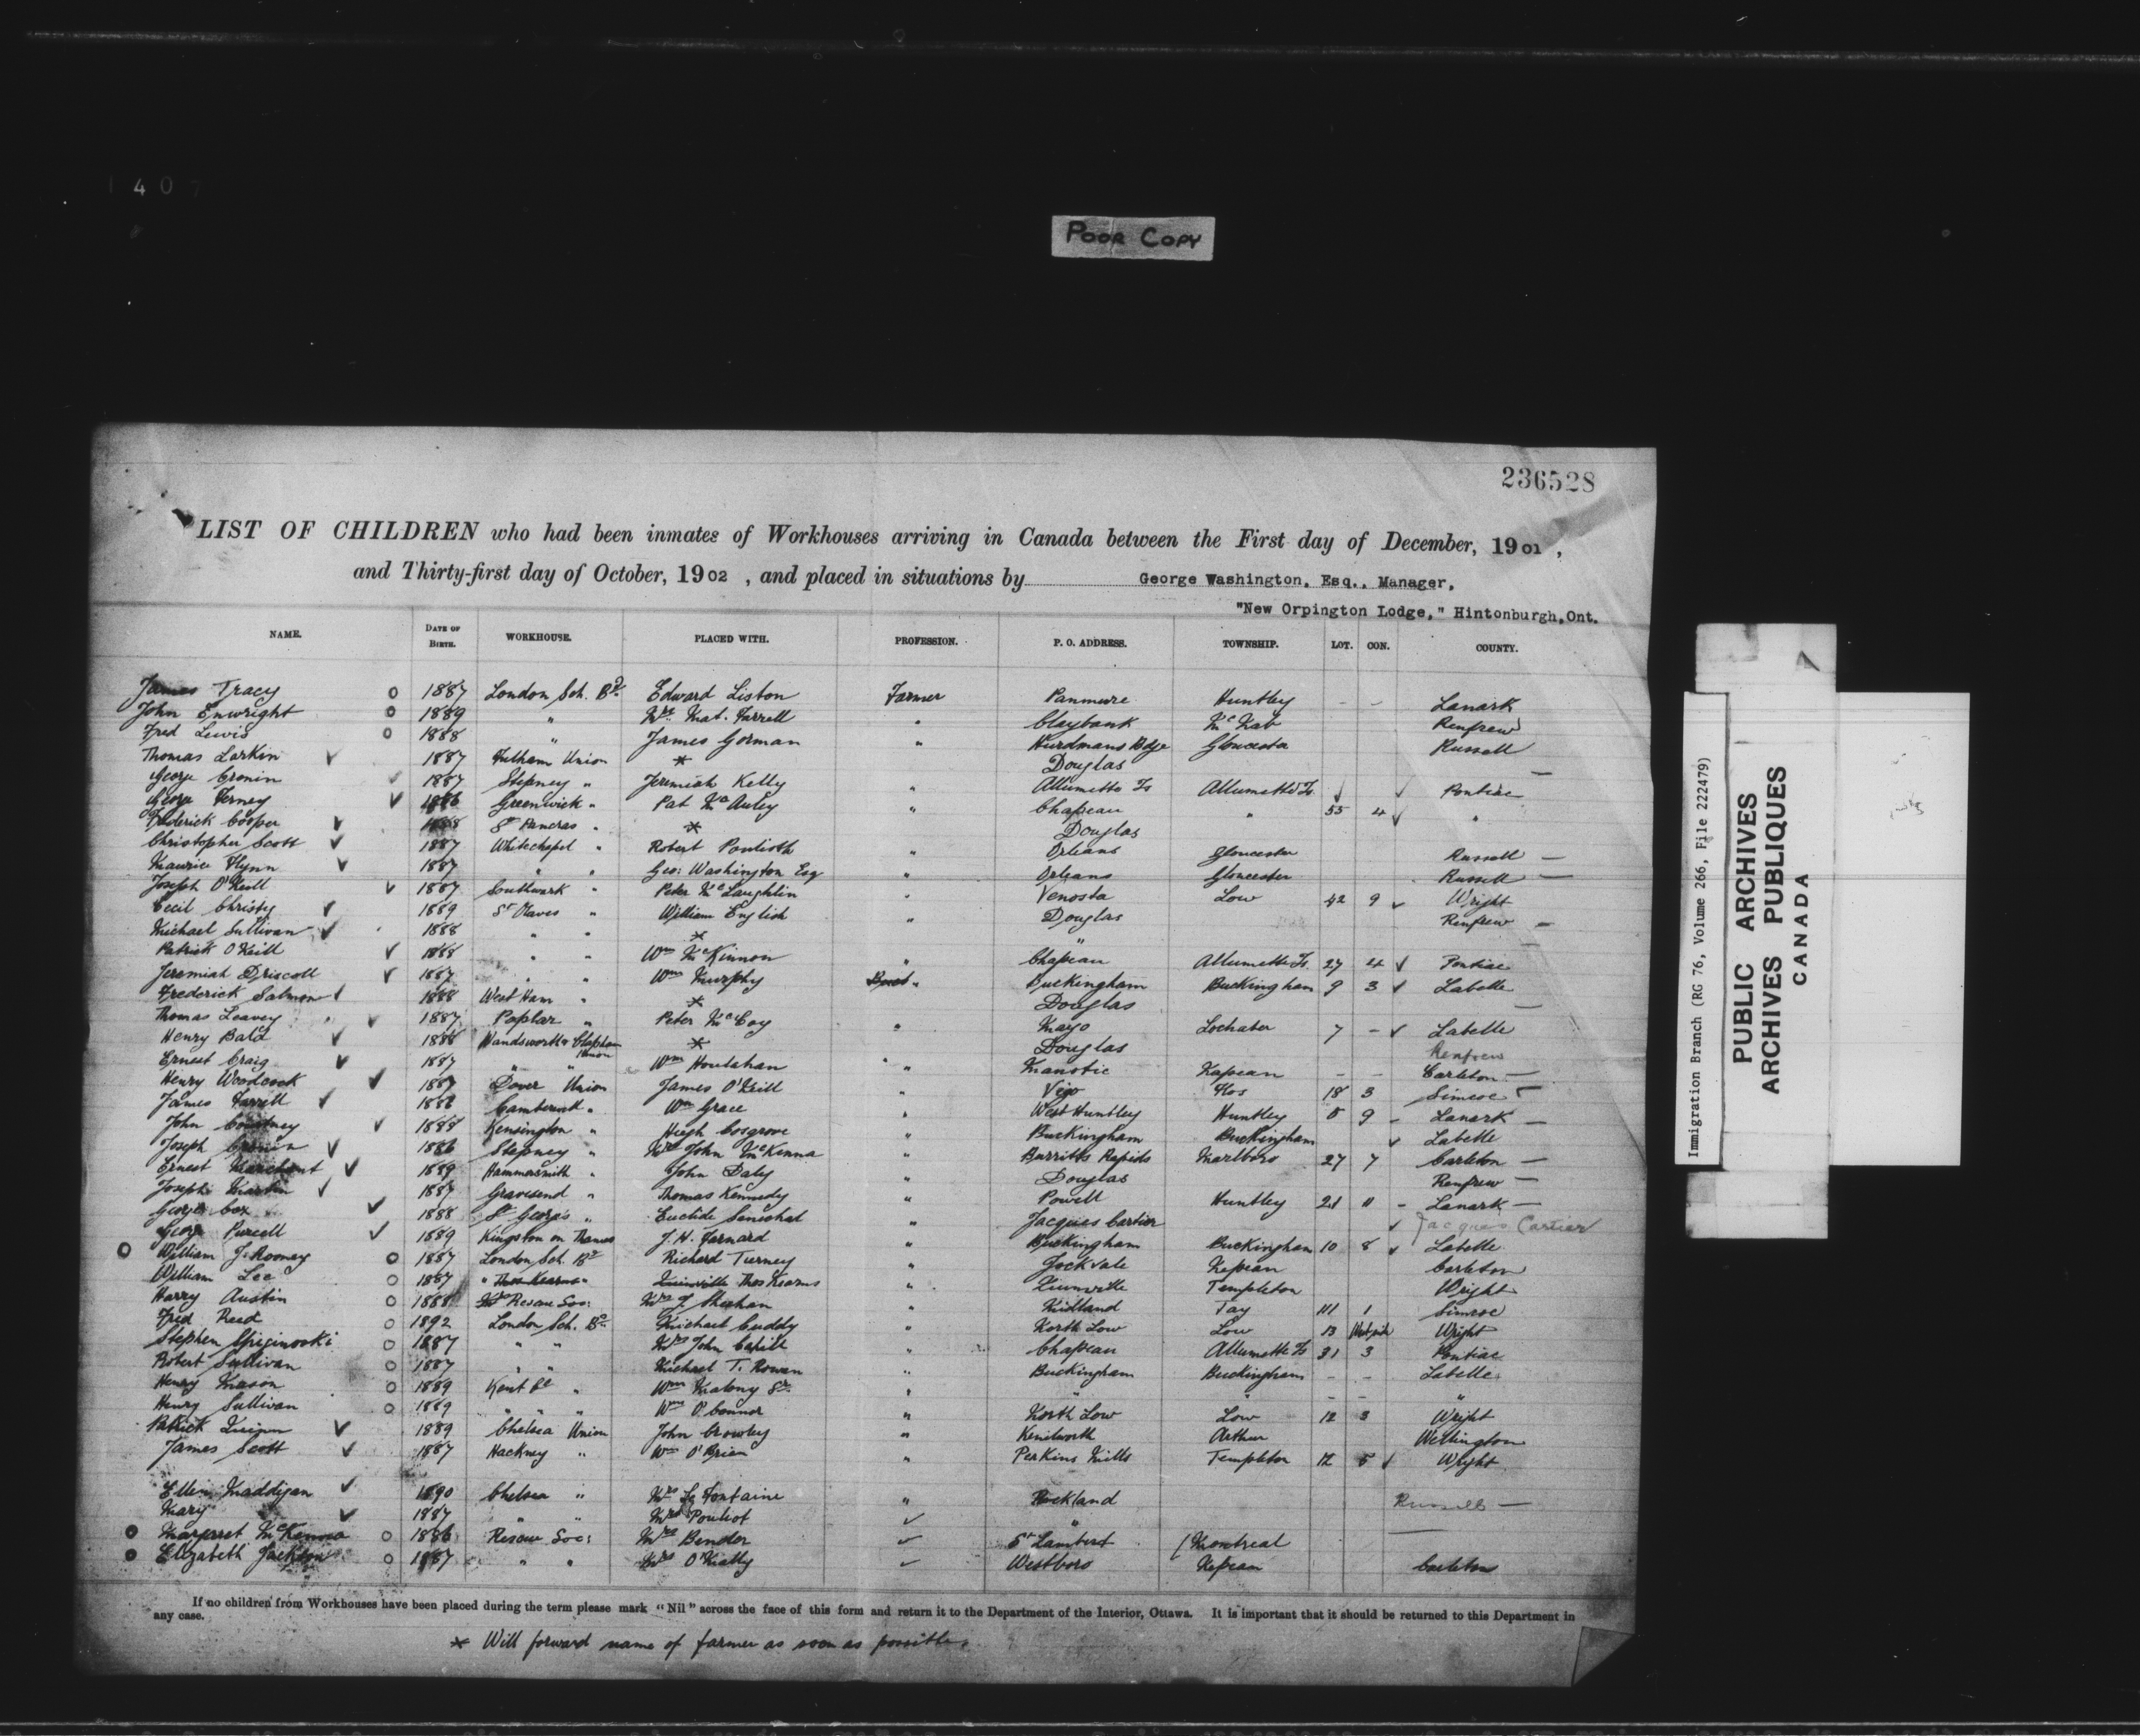 POOR COPY
236528
LIST OF CHILDREN who had been inmates of Workhouses arriving in Canada between the First day of December, 1901,
and Thirty-first day of October, 1902, and placed in situations by George Washington, Esq., Manager,
"New Orpington Lodge," Hintonburgh, Ont.
NAME. DATE OF BIRTH. WORKHOUSE. PLACED WITH. PROFESSION. P. O. ADDRESS. TOWNSHIP. LOT. CON. COUNTY.
James Tracy o 1887 London Sch. Bd Edward Liston Farmer Panmure Huntley - - Lanark
John Enwright o 1889 " Mrs. Mat. Farrell " Claybank McNab Renfrew
Fred Lewis o 1888 " James Gorman " Hurdmans Bdge Gloucester Russell
Thomas Larkin ✓ 1887 Fulham Union * Douglas —
George Cronin ✓ 1887 Stepney " Jeremiah Kelly " Allumette Is Allumette Is ✓ ✓ Pontiac
George Ferney ✓ 1886 Greenwich " Pat McAuley " Chapeau " 55 4 ✓ "
Frederick Cooper ✓ 1888 St Pancras " * Douglas
Christopher Scott ✓ 1887 Whitechapel " Robert Poulioth " Orleans Gloucester Russell —
Maurice Flynn ✓ 1887 " " Geo: Washington Esq " Orleans Gloucester Russell —
Joseph O'Neill ✓ 1887 Southwark " Peter McLaughlin " Venosta Low 42 9 ✓ Wright
Cecil Christy ✓ 1889 St Olaves " William English " Douglas Renfrew —
Michael Sullivan ✓ 1888 " " * "
Patrick O'Neill ✓ 1888 " " Wm McKinnon " Chapeau Allumette Is. 27 4 ✓ Pontiac
Jeremiah Driscoll ✓ 1887 " " Wm Murphy " Buckingham Buckingham 9 3 ✓ Labelle
Frederick Salmon ✓ 1888 West Ham " * Douglas —
Thomas Leavey ✓ 1887 Poplar " Peter McCoy " Mayo Lochaber 7 - ✓ Labelle
Henry Bald ✓ 1888 Wandsworth & Clapham Union * Douglas Renfrew
Ernest Craig ✓ 1887 " " Wm Houlahan " Manotic Nepean - - Carleton —
Henry Woodcock ✓ 1887 Dover Union James O'Neill " Vigo Flos 18 3 Simcoe
James Farrell ✓ 1888 Camberwell " Wm Grace " West Huntley Huntley 5 9 - Lanark —
John Courtney ✓ 1888 Kensington " Hugh Cosgrove " Buckingham Buckingham ✓ Labelle
Joseph Cronin ✓ 1886 Stepney " Mrs John McKenna " Burritts Rapids Marlboro 27 7 Carleton —
Ernest Marchant ✓ 1889 Hammersmith " John Daly " Douglas Renfrew —
Joseph Martin ✓ 1887 Gravesend " Thomas Kennedy " Powell Huntley 21 11 - Lanark —
George Cox ✓ 1888 St George's " Euclide Senechal " Jacques Cartier ✓ Jacques Cartier
George Purcell ✓ 1889 Kingston on Thames J. H. Farnard " Buckingham Buckingham 10 8 ✓ Labelle
o William J. Rooney o 1887 London Sch. Bd Richard Tierney " Jockvale Nepean Carleton
William Lee o 1887 " Thos Kearns " Quinville Thos Kearns " Quinnville Templeton Wright
Harry Austin o 1888 Rescue Soc: Mrs J. Sheehan " Midland Tay 111 1 Simcoe
Fred Reed o 1892 London Sch. Bd Michael Cuddy " North Low Low 13 Wright
Stephen Spiginoski o 1887 " " Mrs John Cahill " Chapeau Allumette Is 31 3 Pontiac
Robert Sullivan o 1887 " " Michael T. Rowan " Buckingham Buckingham - - Labelle
Henry Mason o 1889 Kent " Wm Malony Sr. " " " - - "
Henry Sullivan o 1889 " " " Wm O'Connor " North Low Low 12 3 Wright
Patrick Quinn ✓ 1889 Chelsea Union John Crowley " Kenilworth Arthur Wellington
James Scott ✓ 1887 Hackney " Wm O'Brien " Perkins Mills Templeton 12 5 ✓ Wright
Ellen Maddigan ✓ 1890 Chelsea " Mrs La Fontaine " Rockland Russell —
Mary " ✓ 1887 " " Mrs Pouliot ✓ "
o Margaret McKenna o 1886 Rescue Soc: Mrs Bender ✓ St Lambert (Montreal
o Elizabeth Jackson o 1887 " " Mrs O'Kielly ✓ Westboro Nepean Carleton
If no children from Workhouses have been placed during the term please mark "Nil" across the face of this form and return it to the Department of the Interior, Ottawa. It is important that it should be returned to this Department in
any case.
* Will forward name of farmer as soon as possible.
Immigration Branch (RG 76, Volume 266, File 222479)
PUBLIC ARCHIVES
ARCHIVES PUBLIQUES
CANADA